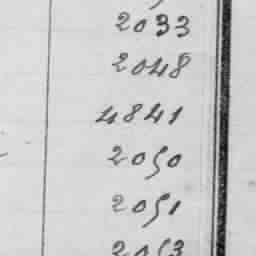 2033
2048
4841
2050
2051
2053